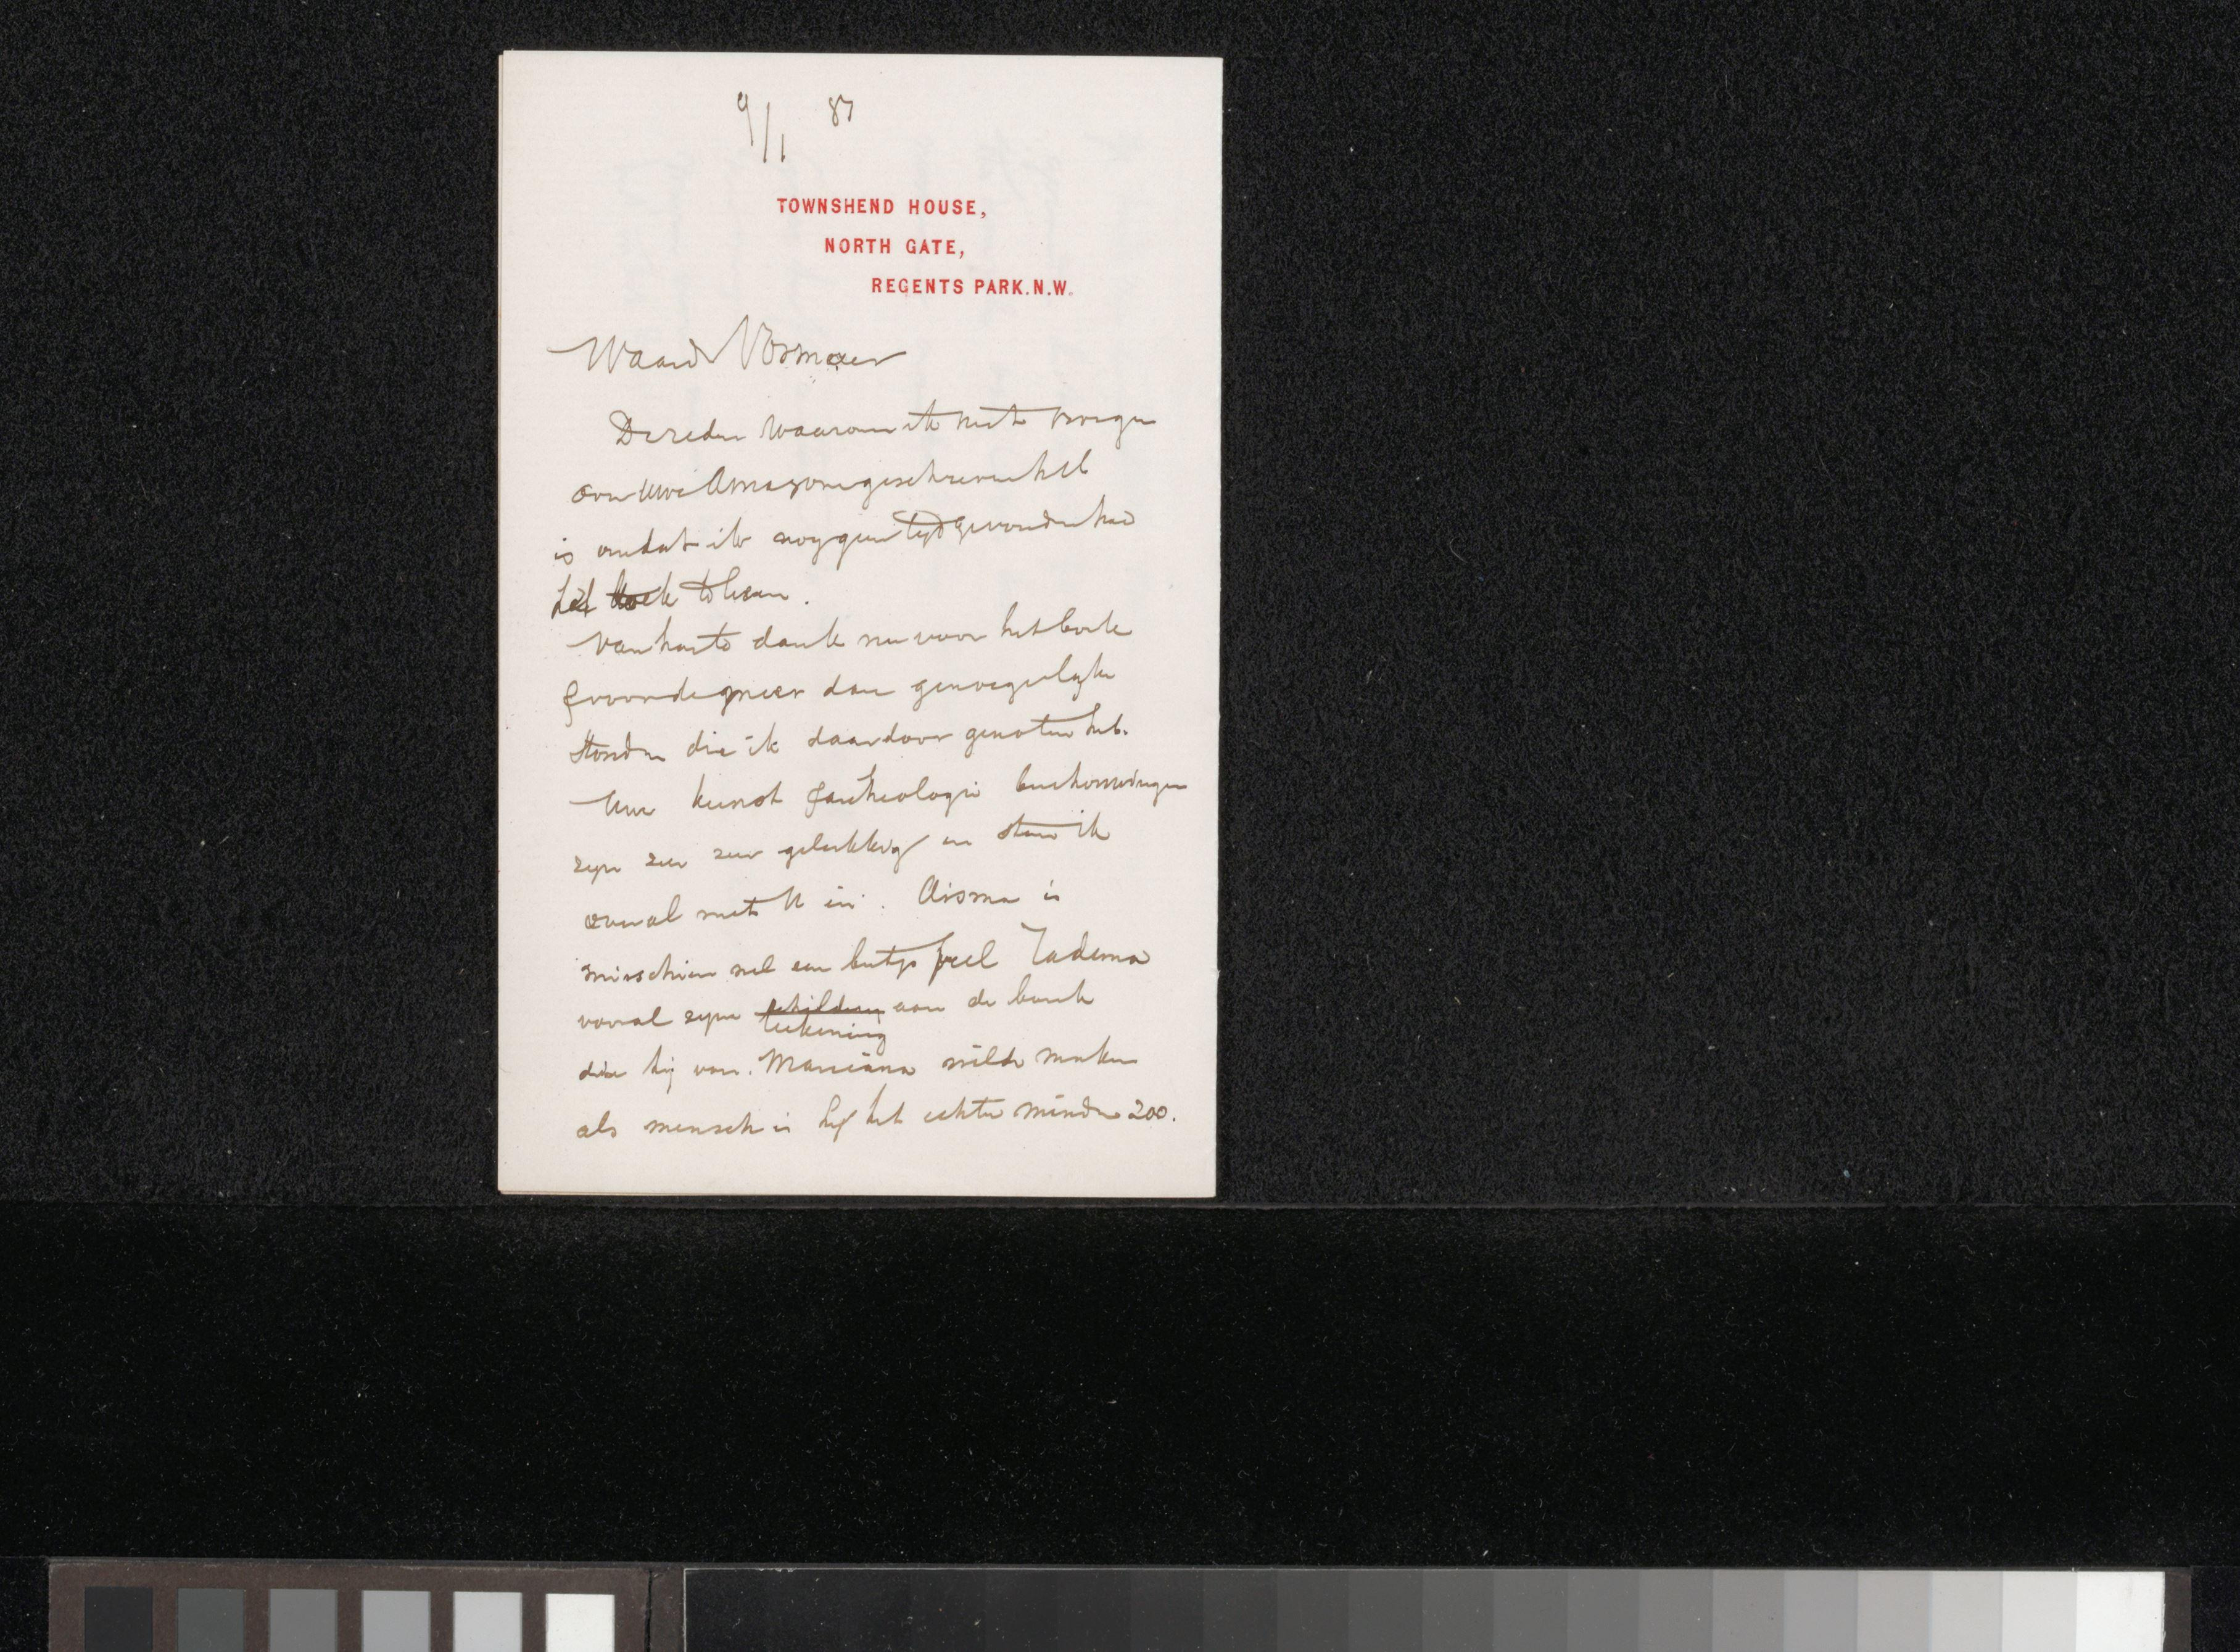 9/1 87
TOWNSHEND HOUSE,
NORTH GATE,
REGENTS PARK.N.W.
Waarde Vosmaer
De reden waarom ik niet vroeger
over uwe Amazone geschreven heb
is omdat ik nog geen tyd gevonden had
het boek te lezen.
Van harte dank nu voor het boek
& voor de meer dan genoegelyke
stonden die ik daardoor genoten heb.
Uwe kunst & archeologie beschouwingen
zyn zeer zeer gelukkig en stem ik
overal met U in. Aisma is
misschien wel een beetje veel Tadema
vooral zyne schildery aan de borst
teekening
die hy van Marciana wilde maken
als mensch is hy het echter minder zoo.